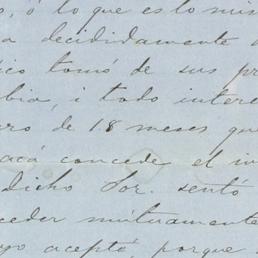 o, ó lo que es lo mis
a decididamente a
ico tomó de sus pr
bia, i todo intere
ero de 18 meses que
acá concede el in
dicho Sor. sentó
ceder mútuamente
go aceptó, porque